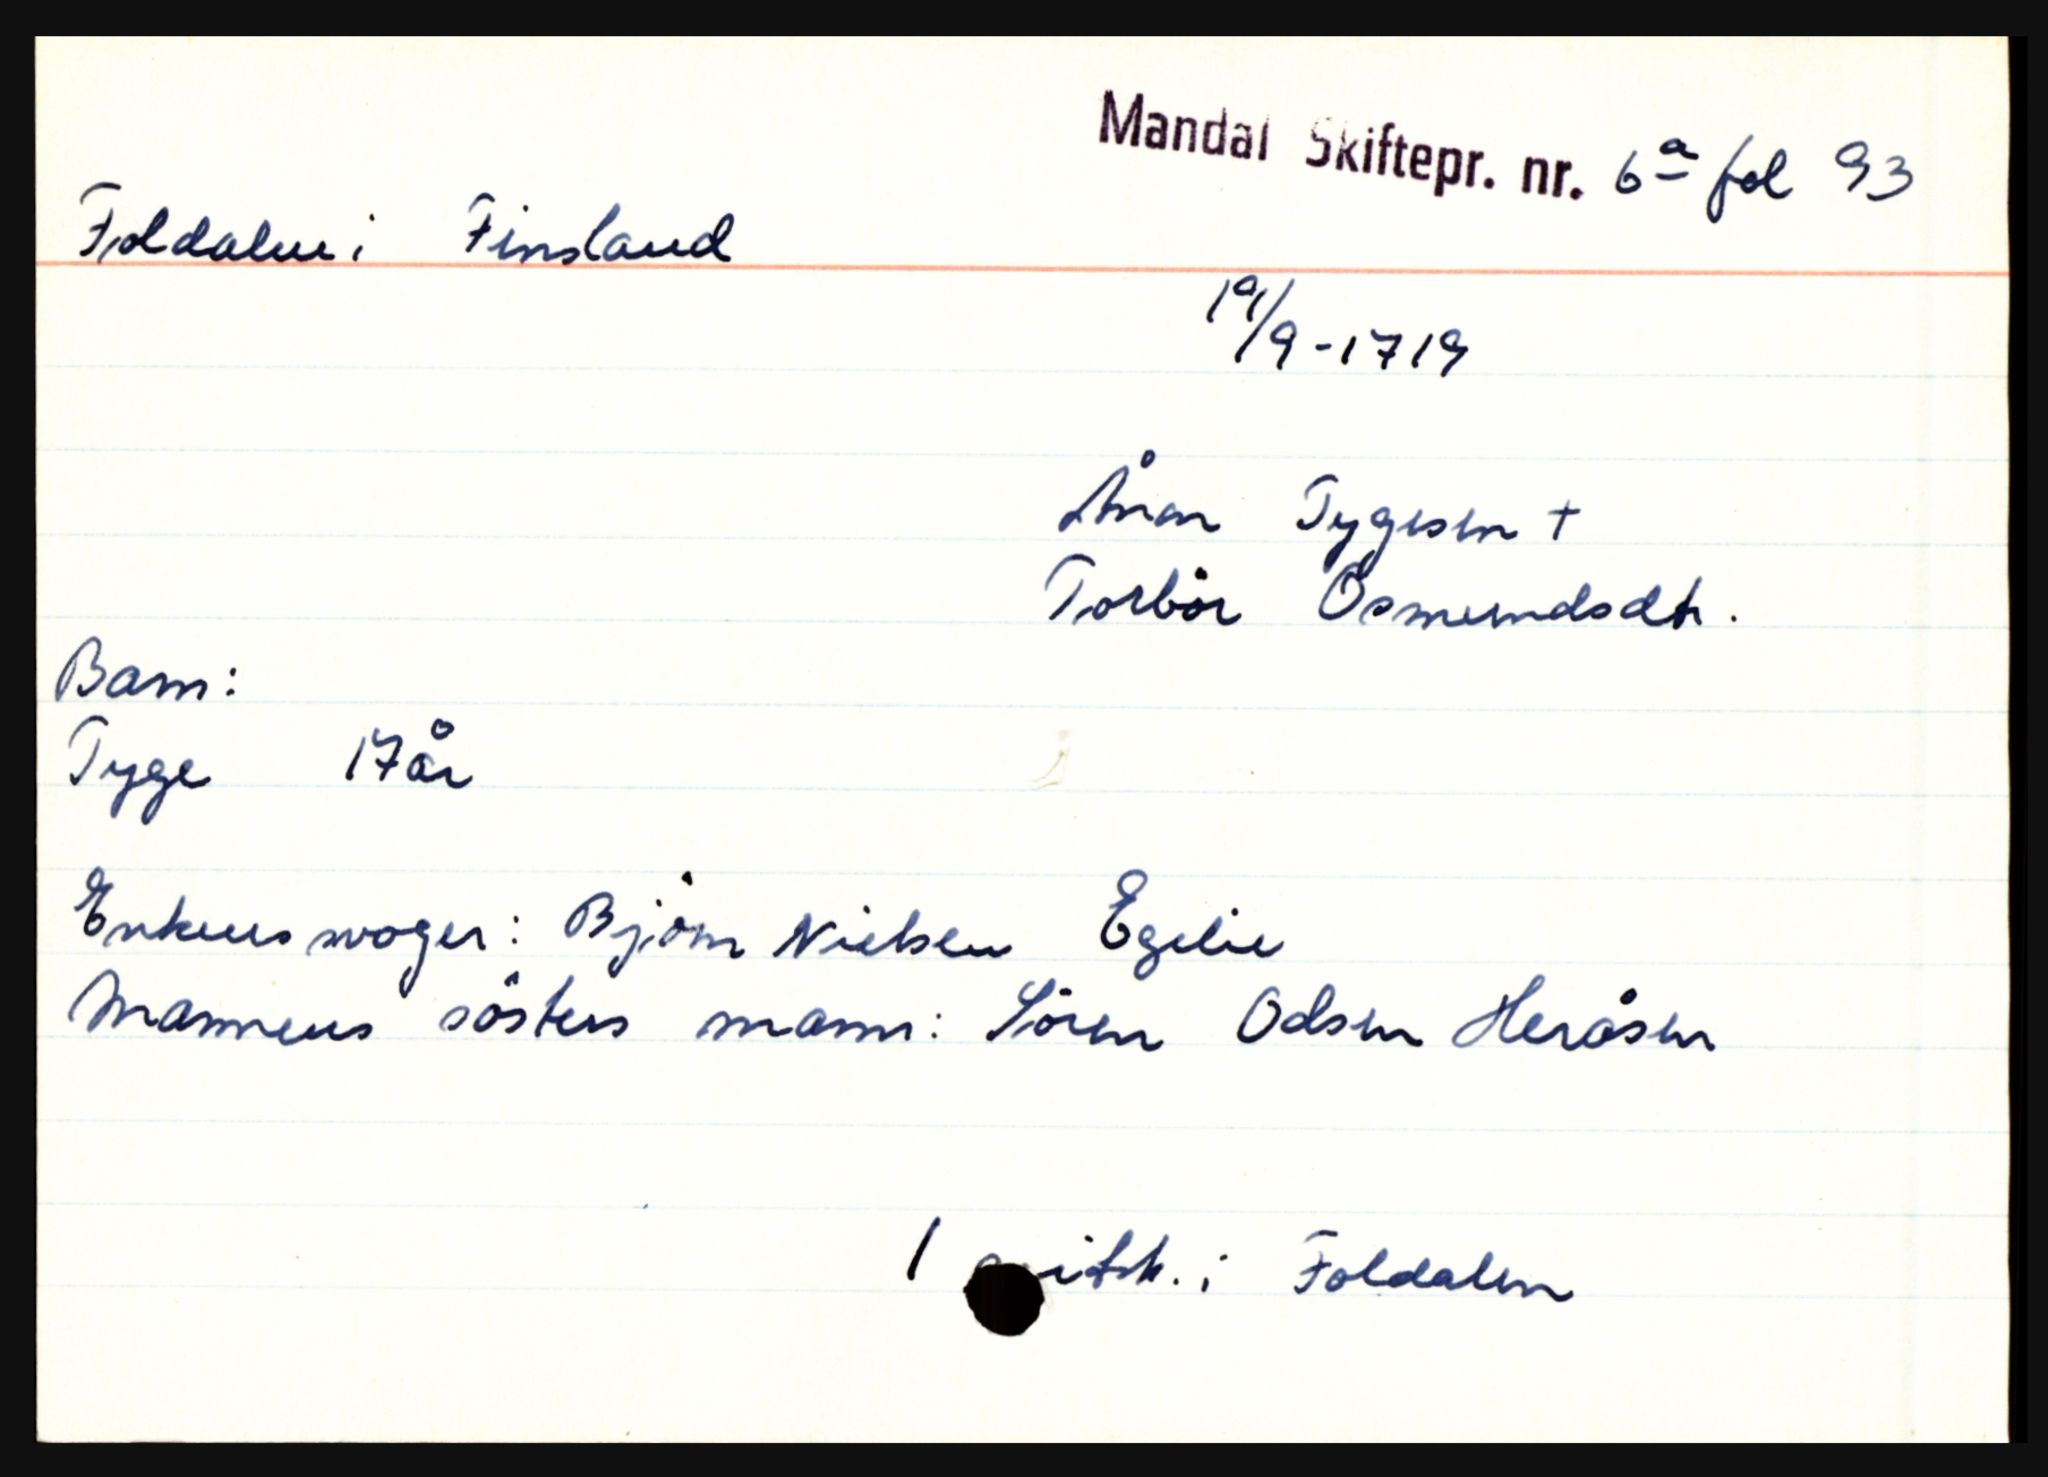 Mandal Skiftepr. nr. 6a fol 93
Foldalen i Finsland
19/9-1719
Ånen Tygesen +
Torbör Osmundsdtr.
Barn:
Tyge 17 år
Enkens svoger: Björn Nielsen Egelie
Mannens södsters mann: Sören Odsen Heråsen
1 i Foldalen